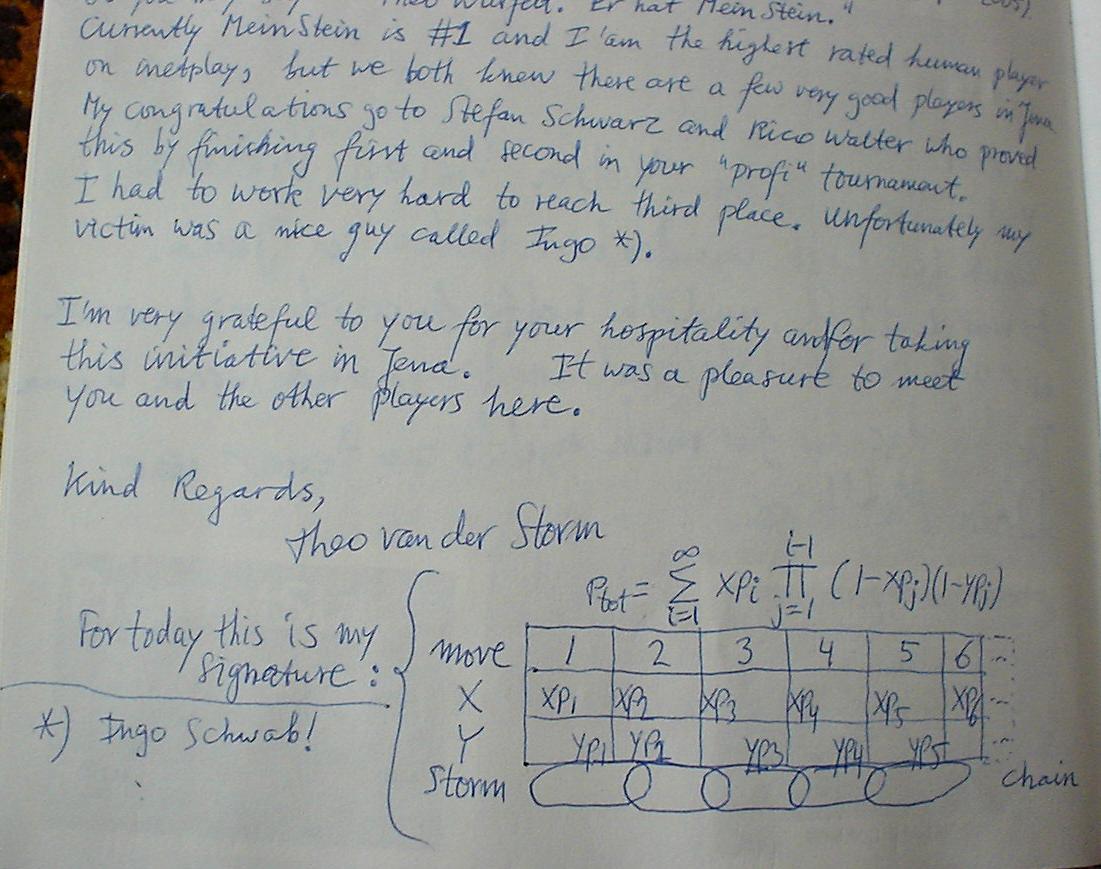 Theo würfelt. Er hat Mein Stein."
Currently MeinStein is #1 and I'am the highest rated human player
on inetplay, but we both know there are a few very good players in Jena
My congratulations go to Stefan Schwarz and Rico Walter who proved
this by finishing first and second in your "profi" tournament.
I had to work very hard to reach third place. Unfortunately my
victim was a nice guy called Ingo *).
I'm very grateful to you for your hospitality and/for taking
this initiative in Jena. It was a pleasure to meet
you and the other players here.
Kind Regards,
Theo van der Storm
Ptot = ∑_{i=1}^{∞} xp_i ∏_{j=1}^{i-1} (1-xp_j)(1-yp_j)
For today this is my
Signature :
move 1 2 3 4 5 6 ...
X XP1 XP2 XP3 XP4 XP5 XP6
Y YP1 YP2 YP3 YP4 YP5 ...
Storm chain
*) Ingo Schwab!